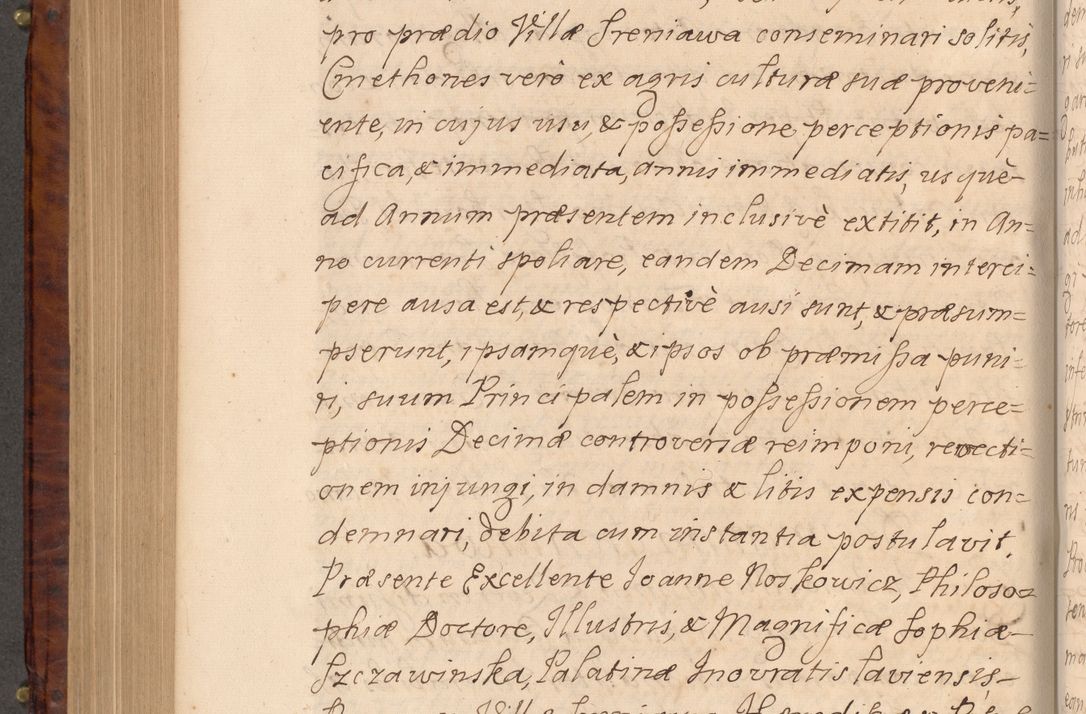 pro prædio Villæ Sreniawa conseminari solitis,
Cmethones verò ex agris culturæ suæ proveni=
ente, in cujus usu, & possessione perceptionis pa=
cifica, & immediata, annis immediatis, usquè
ad Annum præsentem inclusivè extitit, in An=
no currenti spoliare, eandem Decimam interci=
pere ausa est, & respectivè ausi sunt, & præsum=
pserunt, ipsamquè, & ipsos ob præmissa puni=
ri, suum Principalem in possessionem perce=
ptionis Decimæ controversæ reimponi, revecti=
onem injungi, in damnis & litis expensis con=
demnari, debita cum instantia postulavit.
Præsente Excellente Joanne Noskowicz, Philoso=
phiæ Doctore, Illustris, & Magnificæ Sophiæ
Szczawinska, Palatinæ Inovratislaviensis